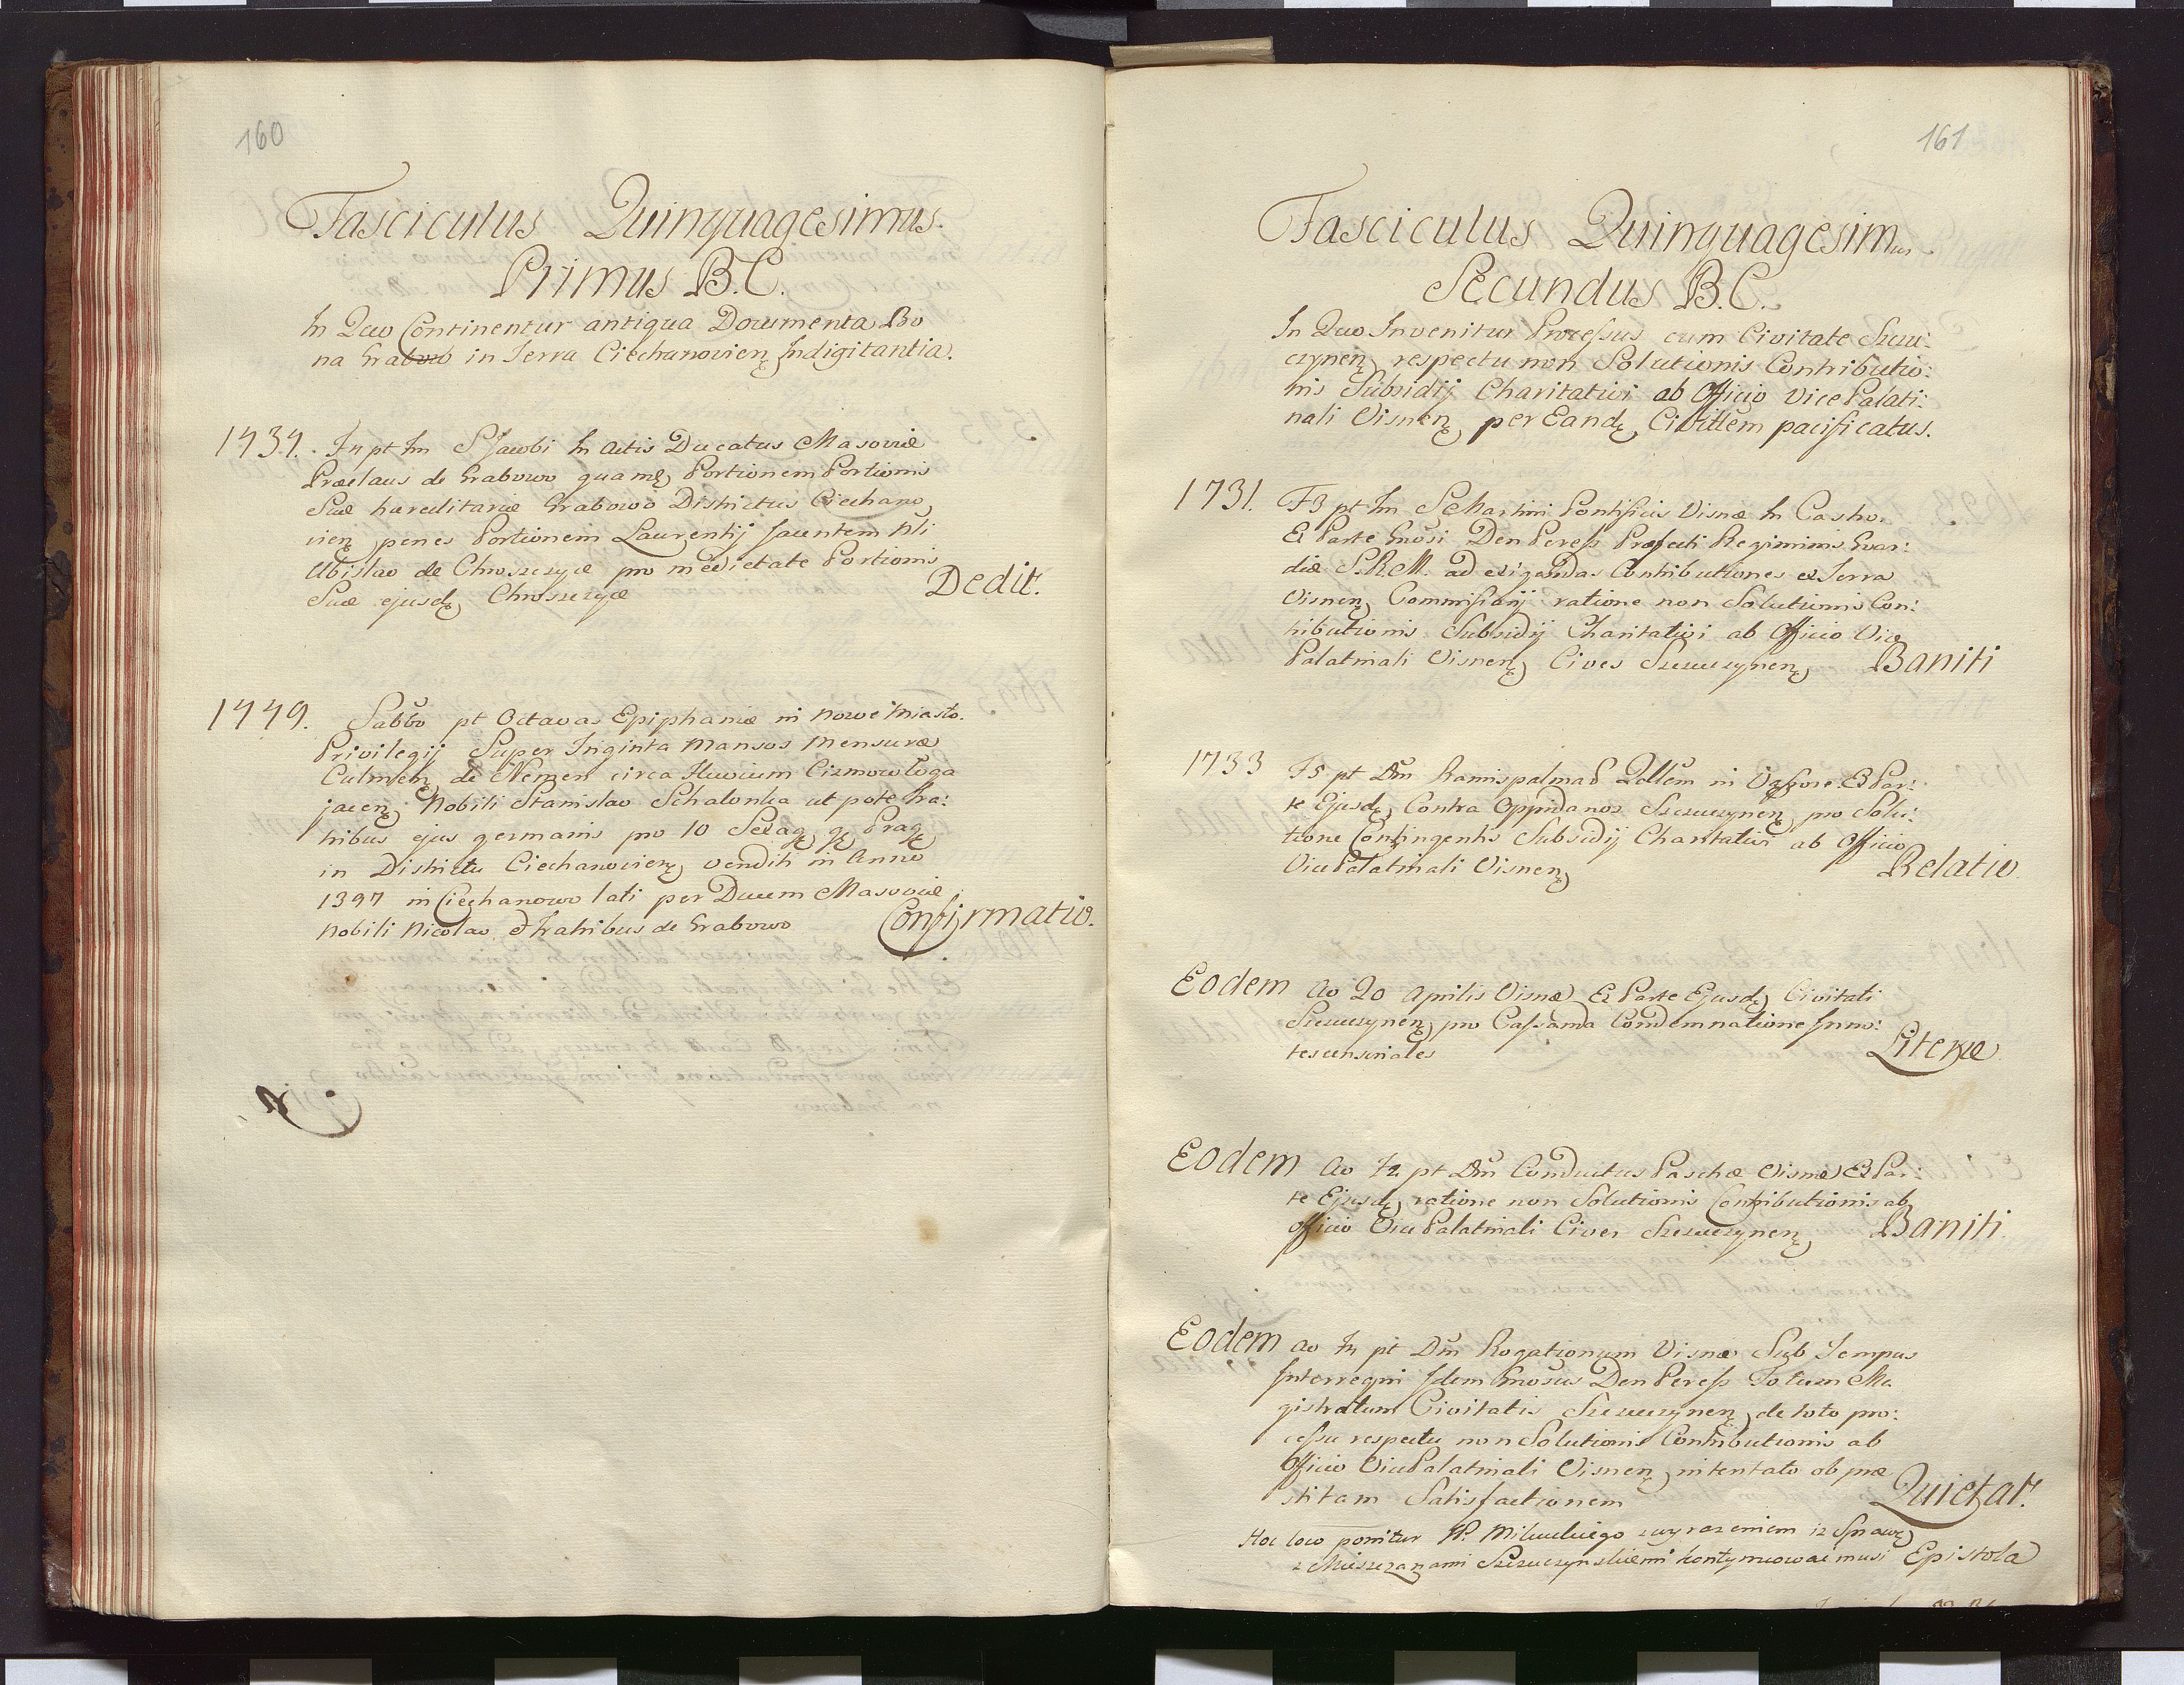 160
Fasciculus Quinquagesimus
Primus B.C.
In Quo Continentur antiqua Documenta Bo
na Grabowo in Terra Ciechanovien Indigitantia.
1434. F4 pt Fm S Jacobi In Actis Ducatus Masoviæ
Præclaus de Grabowo quamę Portionem Portionis
Suæ hæreditariæ Grabowo Districtus Ciechano
vien penes Portionem Laurentij jacentem Nli
Ubislao de Chroszczyce pro medietate Portionis
Suæ ejusd Chroszczyce Dedit.
1449. Sabbo pt Octavas Epiphaniæ in Nowe Miasto.
Privilegij Super Triginta Mansos Mensuræ
Culmen de Niemen circa Fluvium
jacen Nobili Stanislao Schalonka ut pote fra:
tribus ejus germanis pro 10 Sexag g Prag
in Districtu Ciechanovien venditi in Anno
1397 in Ciechanowo lati per Ducem Masoviæ
Nobili Nicolao & Fratribus de Grabowo Confirmatio.
161
Fasciculus Quinquagesimus
Secundus B.C.
In Quo Invenitur Processus cum Civitate Szczu:
czynen respectu non Solutionis Contributio:
nis Subsidij Charitativi ab Officio Vice Palati:
nali Visnen per Eand Civittem pacificatus.
1731. F3 pt Fm S Martini Pontificis Visnæ In Castro.
Ex Parte Gnosi Den Peress Præfecti Regiminis Gvar:
diæ S.R.M. ad exigendas Contributiones ex Terra
Visnen Commissarij ratione non Solutionis Con:
tributionis Subsidij Charitativi ab Officio Vice
Palatinali Visnen Cives Szczuczynen Baniti
1733 F5 pt Dm Ramispalmar Qdllem in Vąssosze Ex Par:
te Ejusd Contra Oppidanos Szczuczynen pro Solu:
tione Contingentis Subsidij Charitativi ab Officio
Vice Palatinali Visnen Relatio.
Eodem Ao 20 Aprilis Visnæ Ex Parte Ejusd Civitati
Szczuczynen pro Cassanda Condemnatione Inno:
tescensoriales Literæ
Eodem Ao F2 pt Dm Conductus Paschæ Visnæ Ex Par:
te Ejusd ratione non Solutionis Contributionis ab
Officio Vice Palatinali Cives Szczuczynen Baniti.
Eodem Ao F4 pt Dm Rogationum Visnæ Sub Tempus
Interregni Idem Gnosus Den Peress Totum Ma
gistratum Civitatis Szczuczynen de toto pro:
cessu respectu non Solutionis Contributionis ab
Officio Vice Palatinali Visnen intentato ob præ
stitam Satisfactionem Quietat.
Hoc loco ponitur JP. z wyrazeniem iz Sprawę
z Mieszczanami Szczuczynskiemi kontynuowac musi Epistola